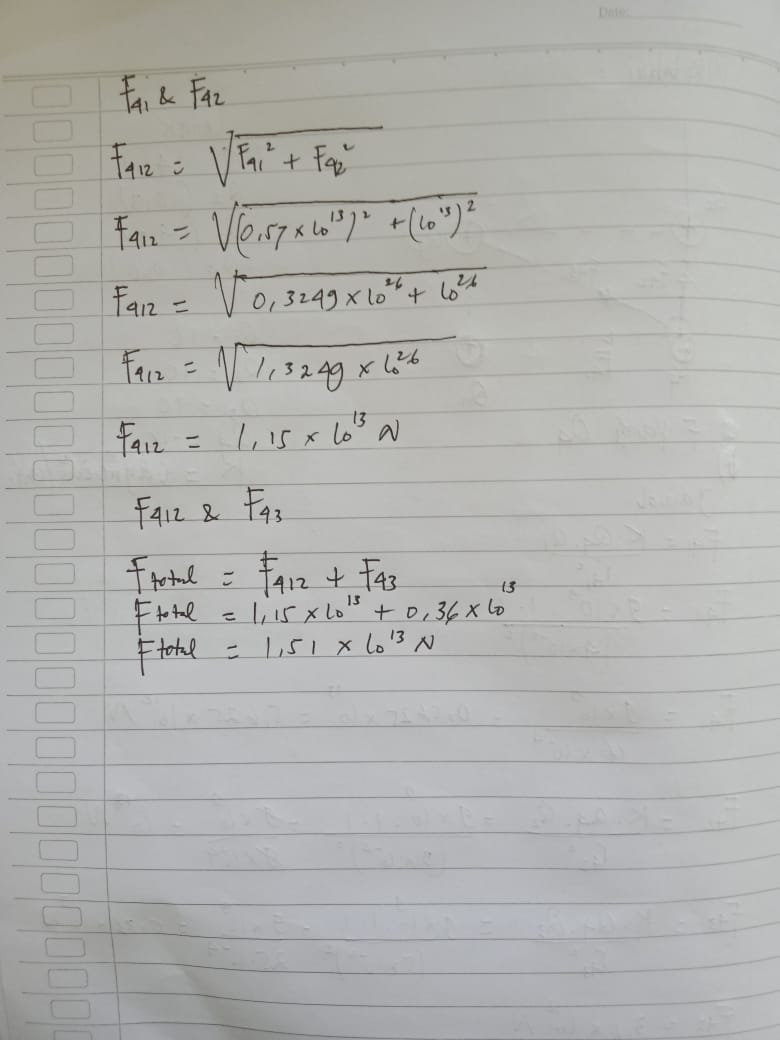 Date:
F₄₁ & F₄₂
F₄₁₂ = √(F₄₁² + F₄₂²)
F₄₁₂ = √((0,57 x 10¹³)² + (10¹³)²)
F₄₁₂ = √(0,3249 x 10²⁶ + 10²⁶)
F₄₁₂ = √(1,3249 x 10²⁶)
F₄₁₂ = 1,15 x 10¹³ N
F₄₁₂ & F₄₃
F total = F₄₁₂ + F₄₃
F total = 1,15 x 10¹³ + 0,36 x 10¹³
F total = 1,51 x 10¹³ N